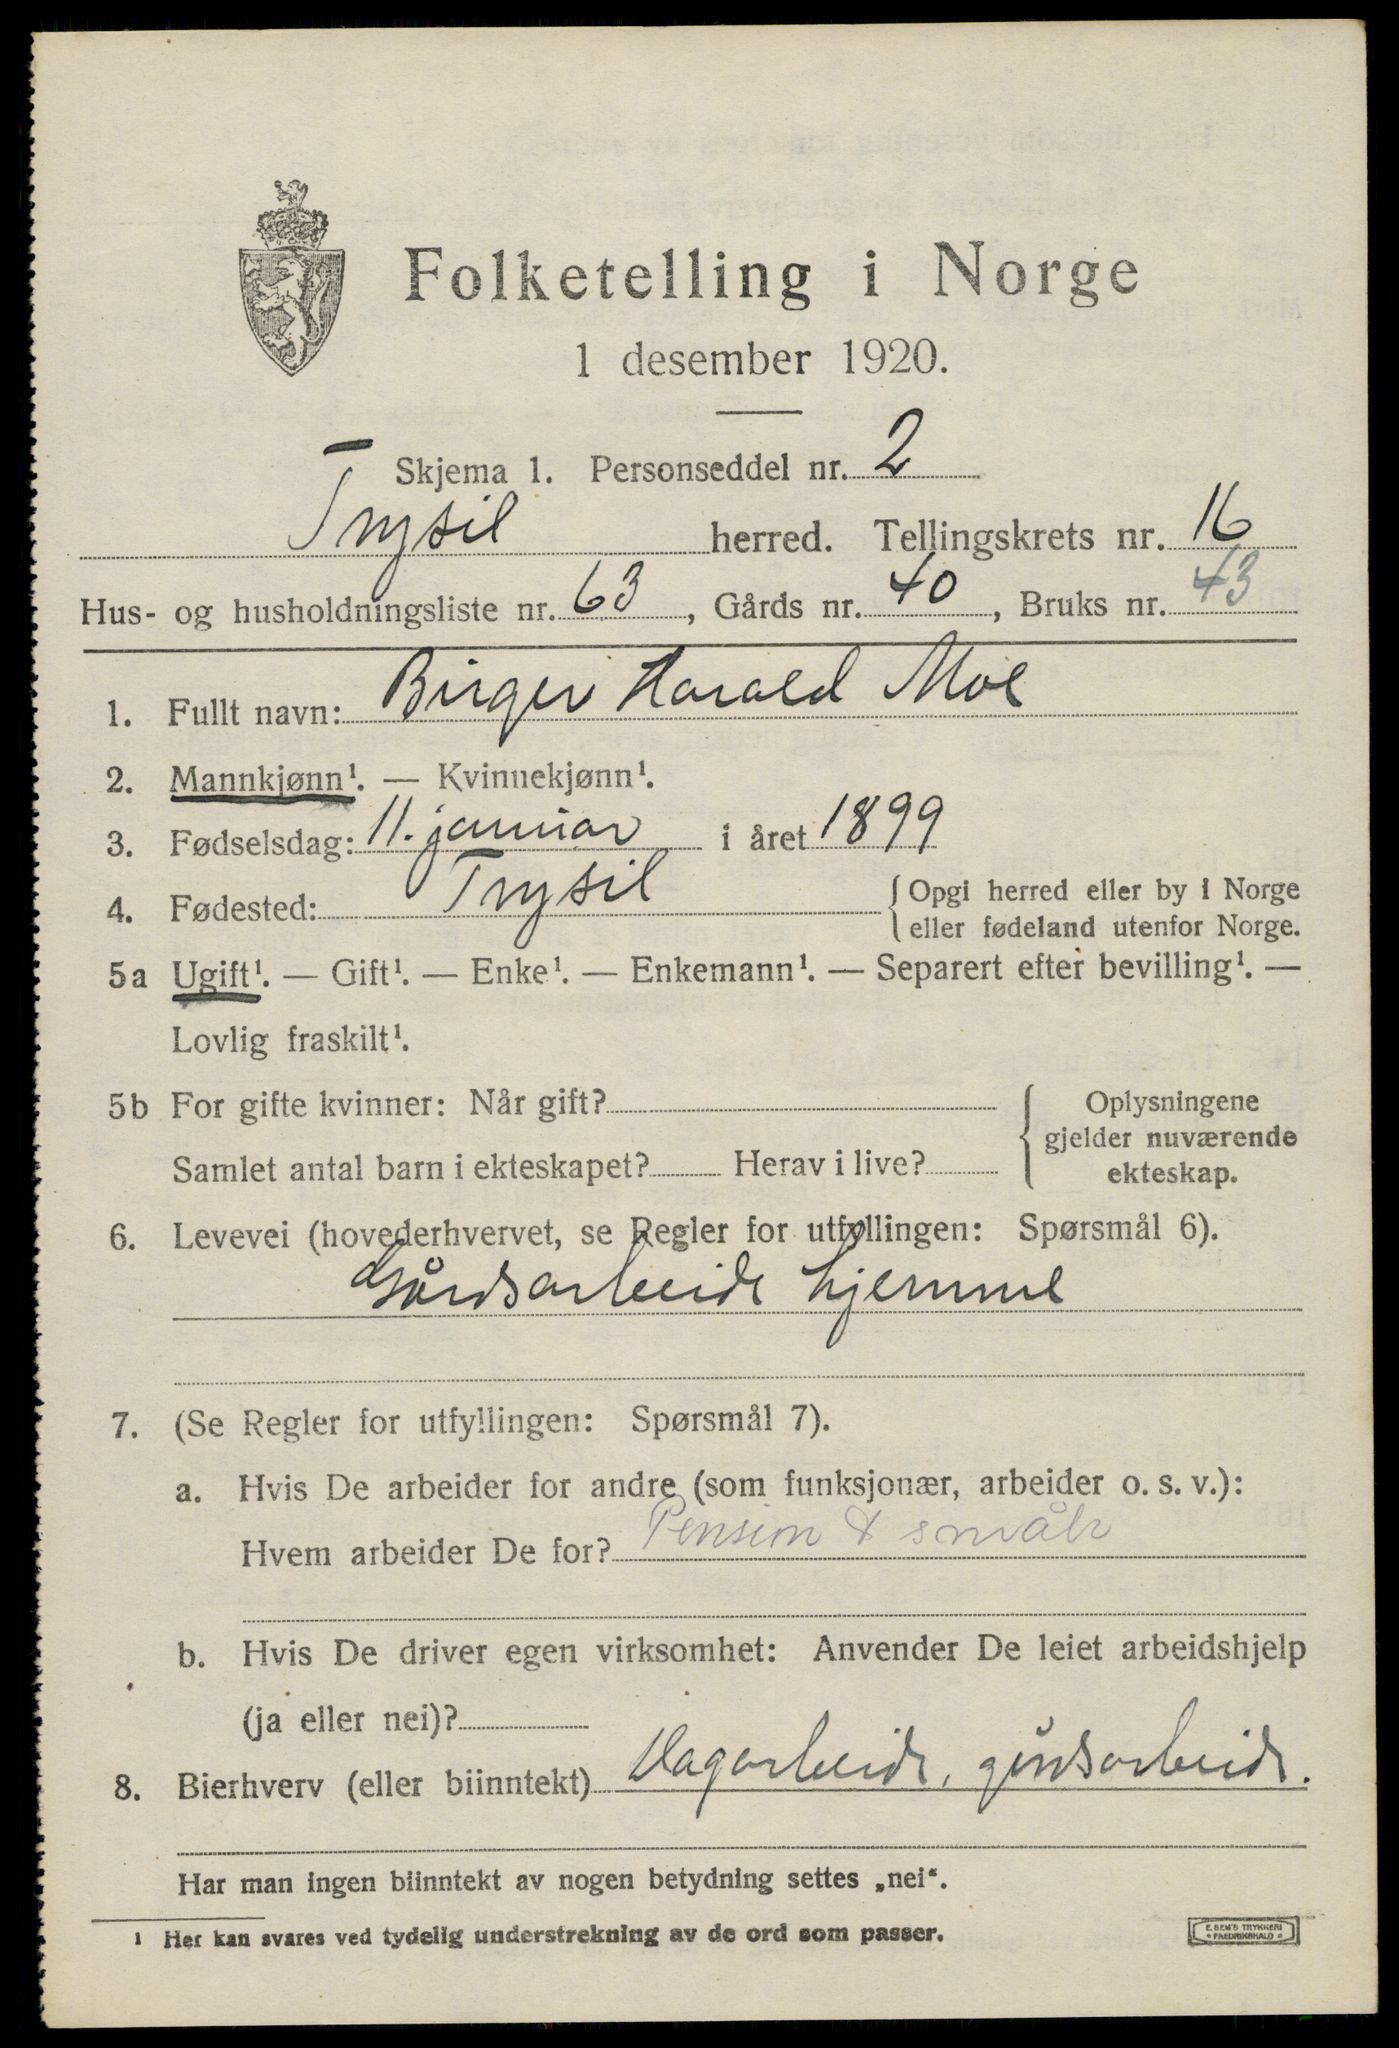 Folketelling i Norge
1 desember 1920.
Skjema 1. Personseddel nr. 2
Trysil herred. Tellingskrets nr. 16
Hus- og husholdningsliste nr. 63, Gårds nr. 40, Bruks nr. 43
1. Fullt navn: Birger Harald Moe
2. Mannkjønn¹. — Kvinnekjønn¹.
3. Fødselsdag: 11. januar i året 1899
4. Fødested: Trysil { Opgi herred eller by i Norge
eller fødeland utenfor Norge.
5a Ugift¹. — Gift¹. — Enke¹. — Enkemann¹. — Separert efter bevilling¹. —
Lovlig fraskilt¹.
5b For gifte kvinner: Når gift? { Oplysningene
gjelder nuværende
Samlet antal barn i ekteskapet? Herav i live?
ekteskap.
6. Levevei (hovederhvervet, se Regler for utfyllingen: Spørsmål 6).
Gårdsarbeide hjemme
7. (Se Regler for utfyllingen: Spørsmål 7).
a. Hvis De arbeider for andre (som funksjonær, arbeider o. s. v.):
Hvem arbeider De for?
b. Hvis De driver egen virksomhet: Anvender De leiet arbeidshjelp
(ja eller nei)?
8. Bierhverv (eller biinntekt) Dagarbeide, gårdsarbeide.
Har man ingen biinntekt av nogen betydning settes „nei“.
¹ Her kan svares ved tydelig understrekning av de ord som passer.
E. SEM'S TRYKKERI
* FREDRIKSHALD *